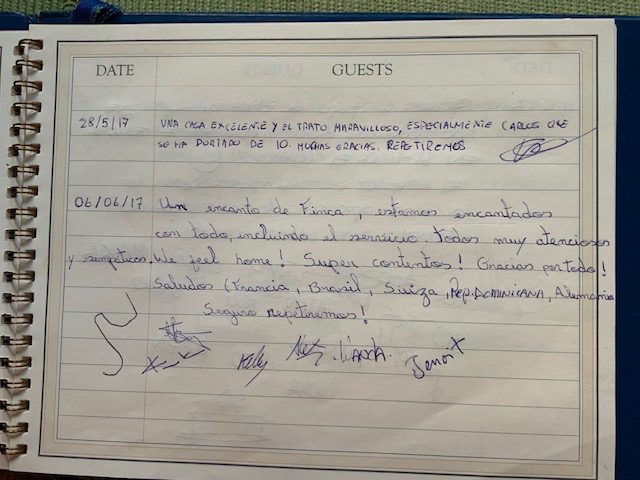 DATE GUESTS
28/5/17 UNA CASA EXCELENTE Y EL TRATO MARAVILLOSO, ESPECIALMENTE CARLOS QUE
SE HA PORTADO DE 10. MUCHAS GRACIAS. REPETIREMOS
06/06/17 Un encanto de Finca, estamos encantados
con todo, incluindo el servicio. Todos muy atenciosos
y simpáticos. We feel home! Super contentos! Gracias por todo!
Saludos (Francia, Brasil, Suiza, REP. DOMINICANA, Alemania
Seguro repetiremos!
Kelly Benoit